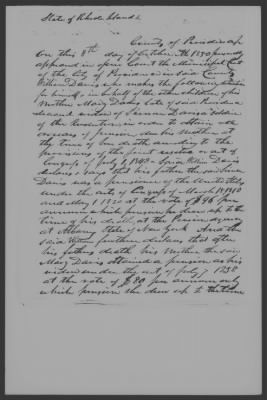 State of Rhode Island &
County of Providence
On this 8th day of October 1850 personally
appeared in open Court the Municipal Court
of the City of Providence in said County
William Davis who makes the following
himself in behalf of the other children of his
Mother Mary Davis late of said Providence
deceased widow of Davis a soldier
of the Revolution in order to obtain the
arrears of pension due his Mother at
the time of her death according to the
provisions of the joint resolution of
Congress of July 1, 1848 William Davis
declares & says that his father the said
Davis was a pensioner of the United States
under the acts of Congress of March 18, 1818
and May 1 1820 at the rate of $96 per
annum which pension he drew up to the
time of his death at the Pension agency
at Albany State of New York And the
said William further declares that after
his fathers death his Mother the said
Mary Davis obtained a pension as his
widow under the act of July 7 1838
at the rate of $80 per annum only
which pension she drew up to the time